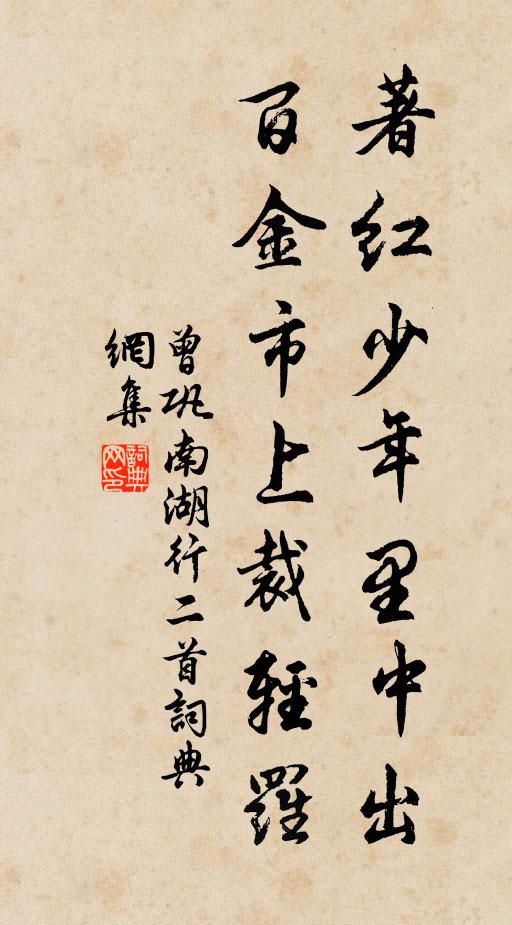 著红少年里中出
百金市上裁輕羅
曾巩南湖行二首詞典
網集
詞典
网印